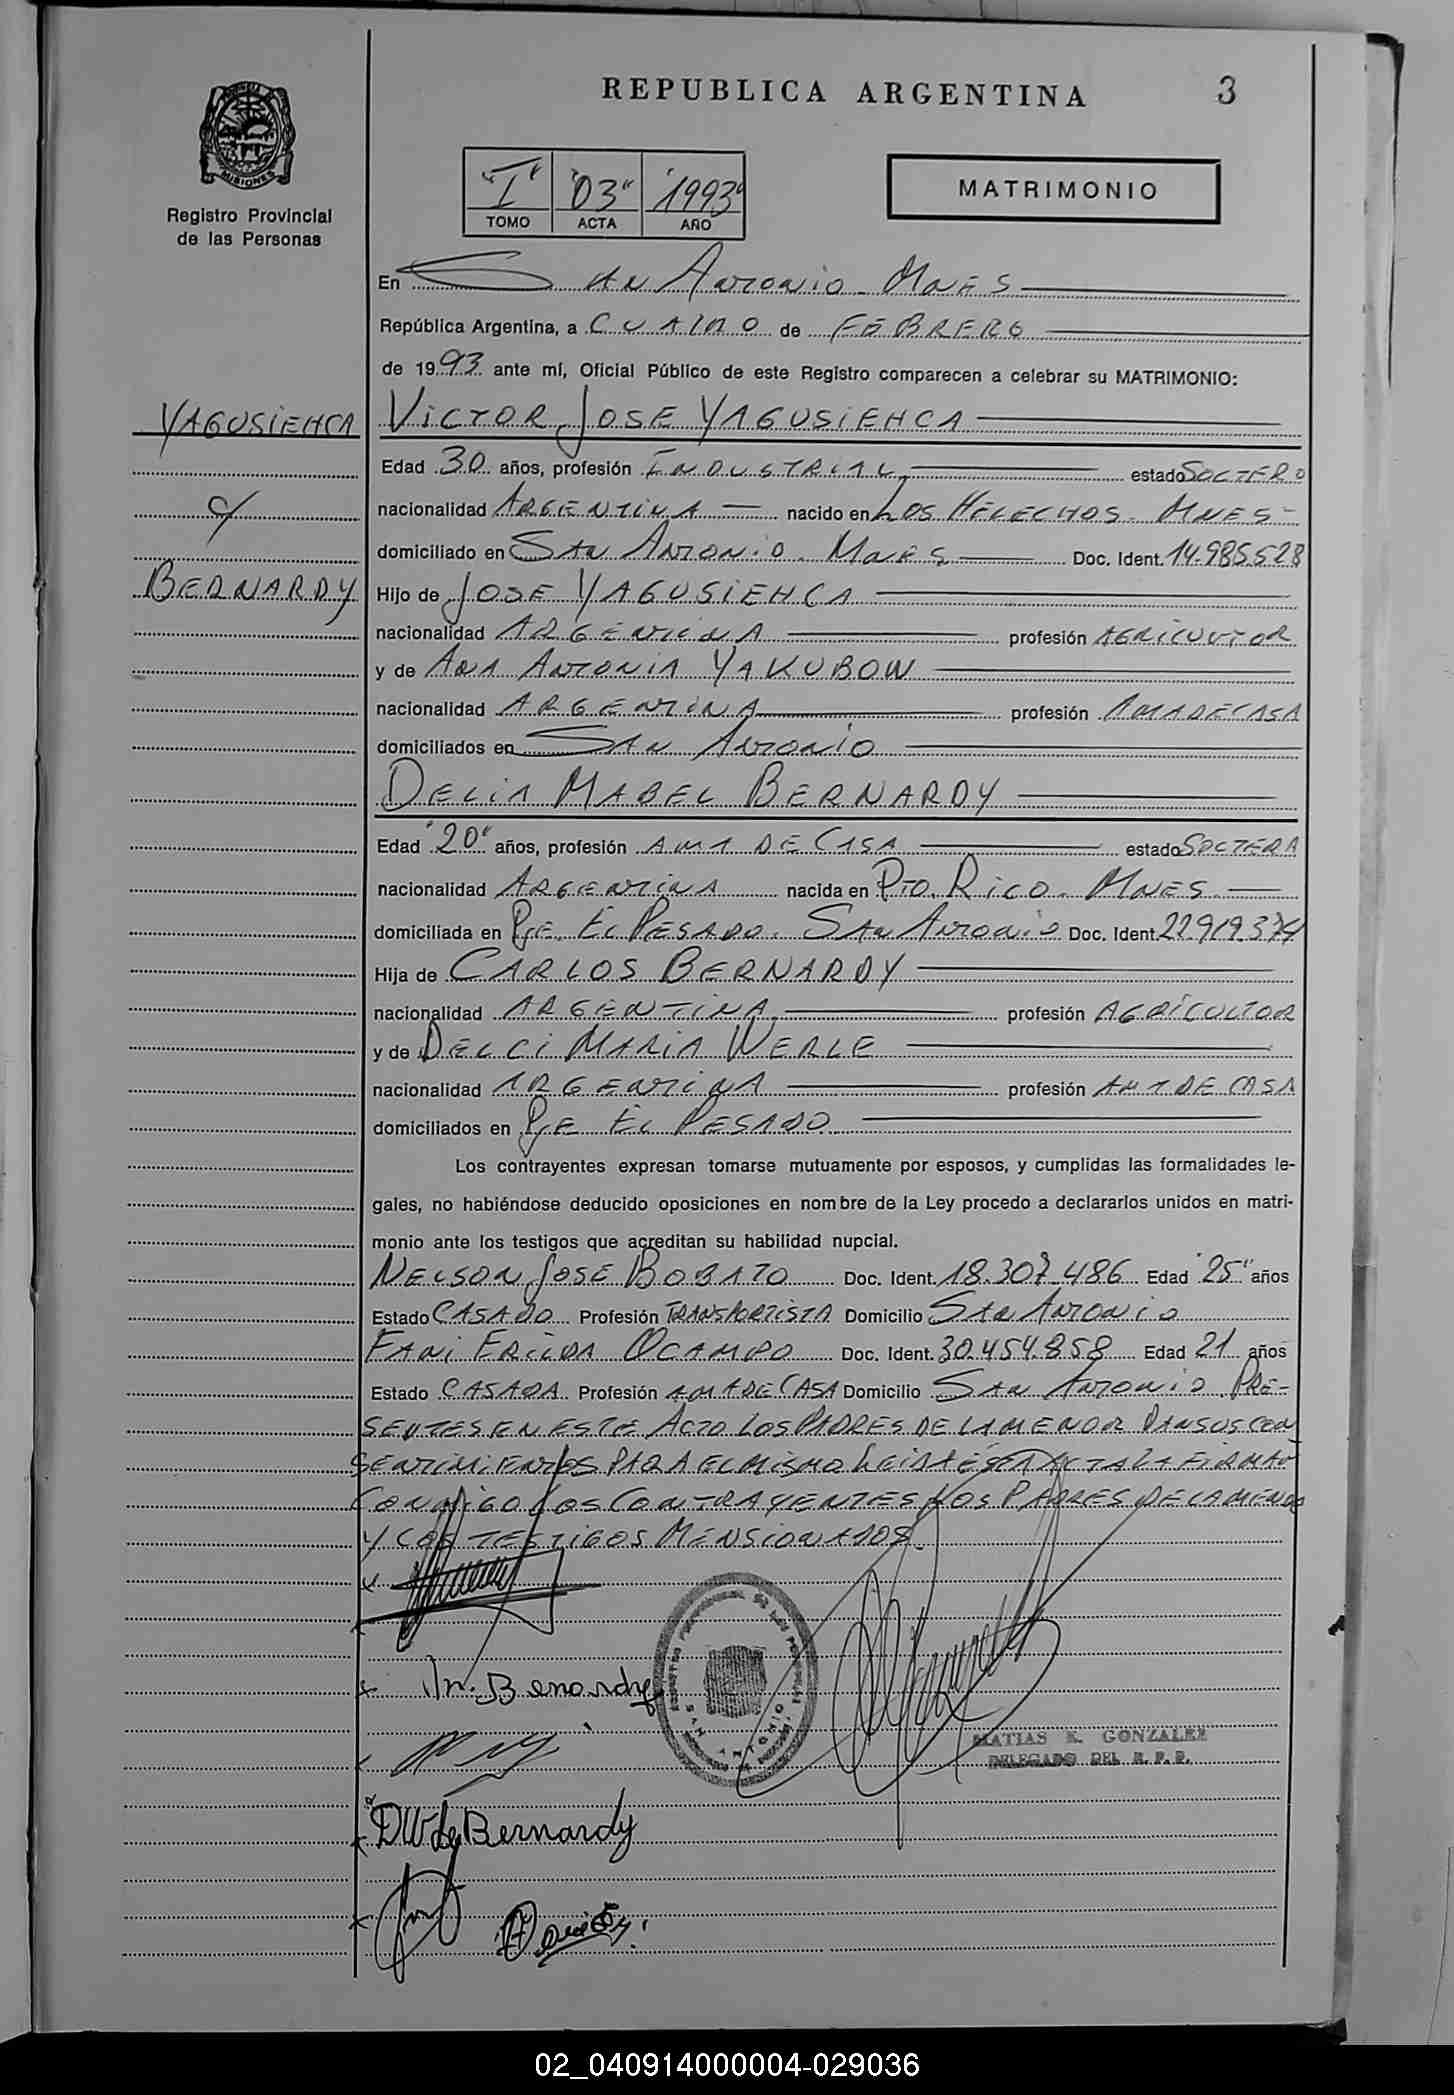 REPUBLICA ARGENTINA
3
MISIONES
Registro Provincial
de las Personas
"I" "03" "1993"
TOMO ACTA AÑO
MATRIMONIO
En San Antonio - Mnes
República Argentina, a CUATRO de FEBRERO
de 1993 ante mí, Oficial Público de este Registro comparecen a celebrar su MATRIMONIO:
YAGUSIEHCA
VICTOR JOSE YAGUSIEHCA
Edad 30 años, profesión INDUSTRIAL estado SOLTERO
nacionalidad ARGENTINA nacido en LOS HELECHOS - MNES -
c/
domiciliado en SAN ANTONIO - MNES Doc. Ident. 14.985.528
BERNARDY
Hijo de JOSE YAGUSIEHCA
nacionalidad ARGENTINA profesión AGRICULTOR
y de ANA ANTONIA YAKUBOW
nacionalidad ARGENTINA profesión AMA DE CASA
domiciliados en SAN ANTONIO
DELIA MABEL BERNARDY
Edad "20" años, profesión AMA DE CASA estado SOLTERA
nacionalidad ARGENTINA nacida en PTO. RICO - MNES -
domiciliada en PJE. EL PESADO - SAN ANTONIO Doc. Ident 22.919.374
Hija de CARLOS BERNARDY
nacionalidad ARGENTINA profesión AGRICULTOR
y de DELCI MARIA WERLE
nacionalidad ARGENTINA profesión AMA DE CASA
domiciliados en PJE EL PESADO
Los contrayentes expresan tomarse mutuamente por esposos, y cumplidas las formalidades le-
gales, no habiéndose deducido oposiciones en nombre de la Ley procedo a declararlos unidos en matri-
monio ante los testigos que acreditan su habilidad nupcial.
NELSON JOSE BOBATO Doc. Ident. 18.307.486 Edad "25" años
Estado CASADO Profesión TRANSPORTISTA Domicilio SAN ANTONIO
FANI ERILDA OCAMPO Doc. Ident. 30.454.858 Edad 21 años
Estado CASADA Profesión AMA DE CASA Domicilio SAN ANTONIO. PRE-
SENTES EN ESTE ACTO LOS PADRES DE LA MENOR DAN SUS CON
SENTIMIENTOS PARA EL MISMO LEIDA ESTA ACTA LA FIRMAN
CONMIGO LOS CONTRAYENTES LOS PADRES DE LA MENOR
Y LOS TESTIGOS MENSIONADOS.
SAN ANTONIO
MATIAS K. GONZALEZ
DELEGADO DEL R. P. P.
DW de Bernardy
02_040914000004-029036